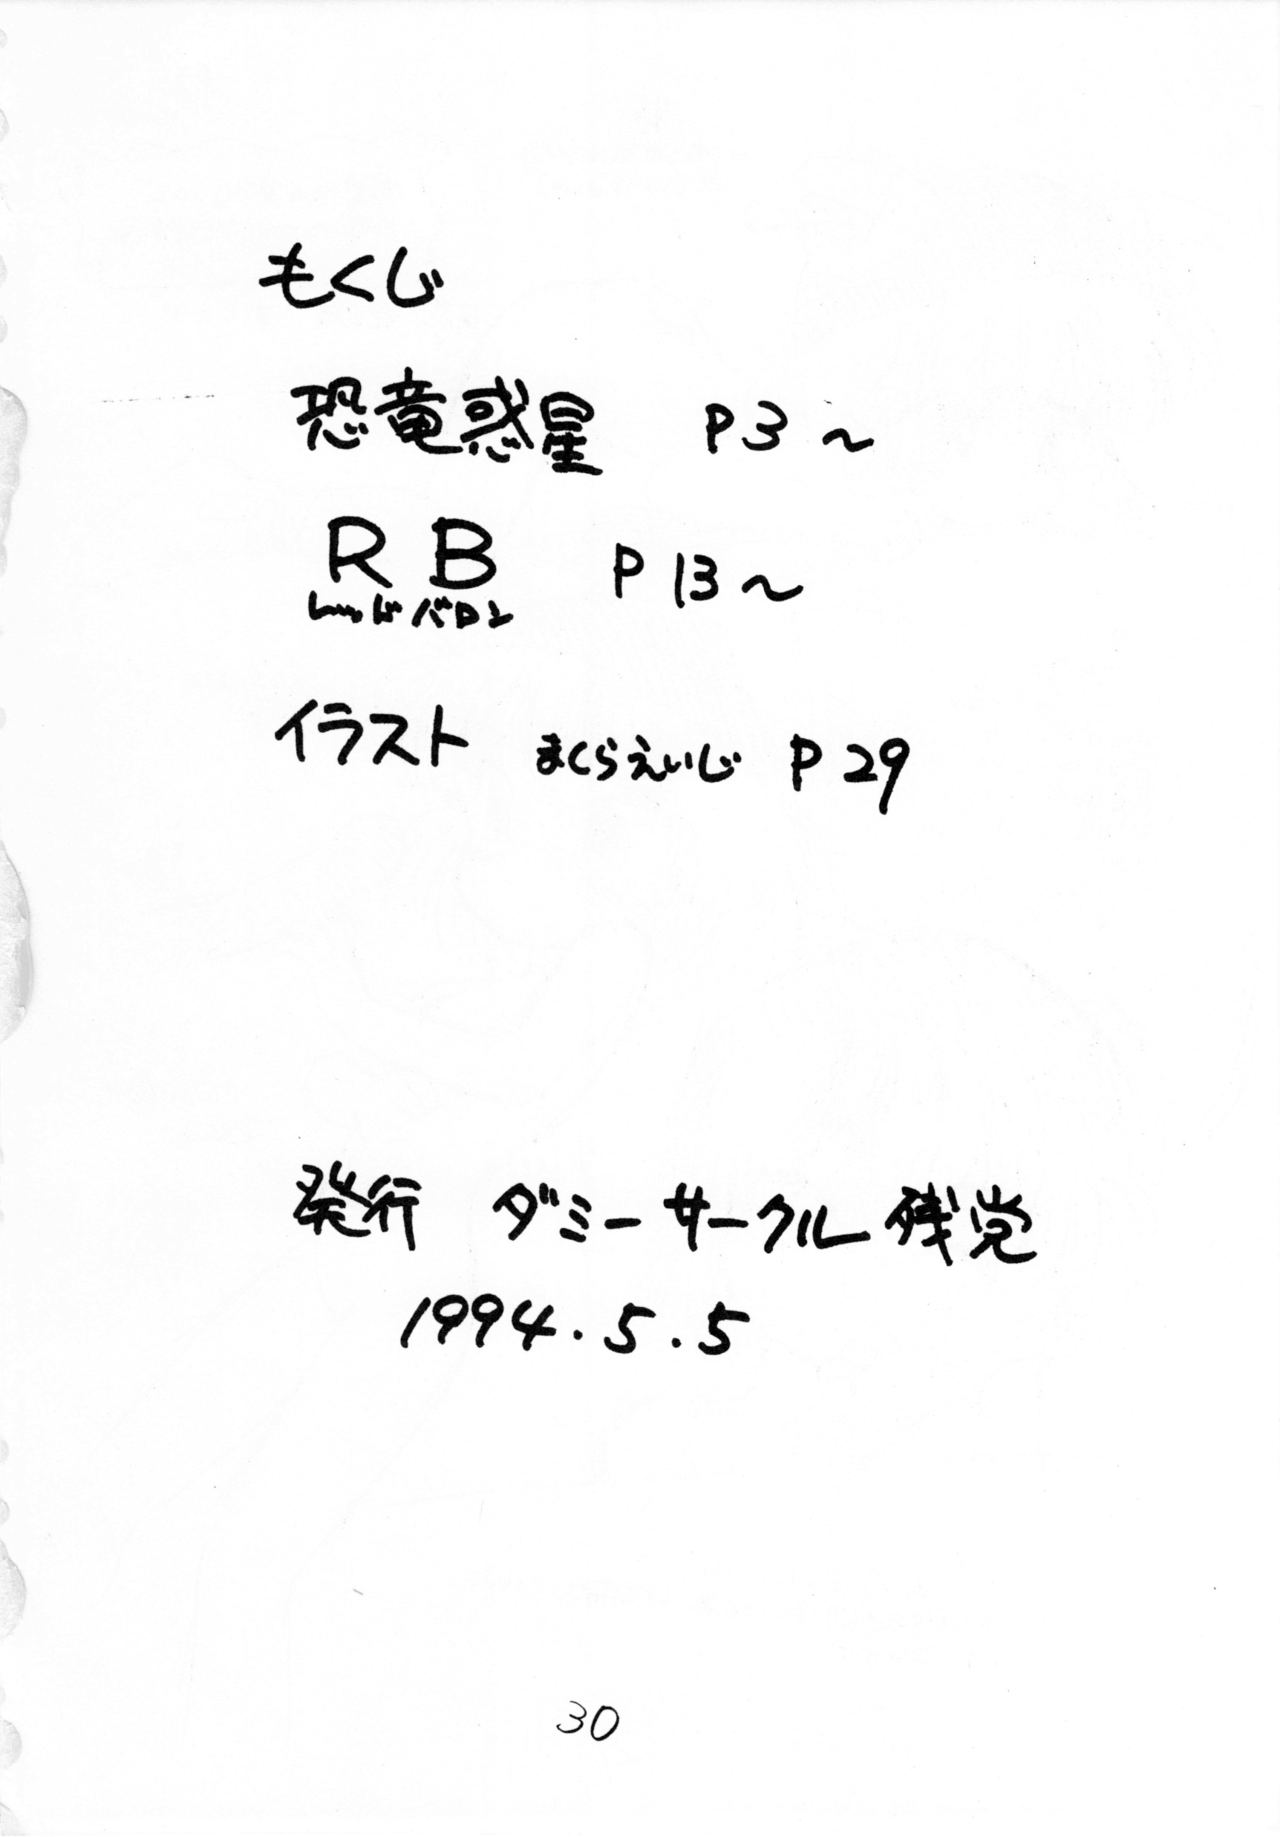 もくじ
恐竜惑星 P3~
RB P13~
レッドバロン
イラスト まくらえいじ P29
発行 ダミーサークル残党
1994.5.5
30